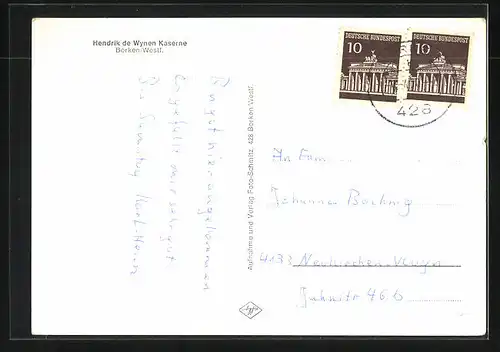 Hendrik de Wynen Kaserne
Borken-Westf.
DEUTSCHE BUNDESPOST
10
DEUTSCHE BUNDESPOST
10
428
Bin gut hier angekommen
es gefällt mir sehr gut
Bis Samstag
Aufnahme und Verlag Foto-Schmitz, 428 Borken Westf.
An Fam
Johannes
4133 Neukirchen-Vluyn
46b